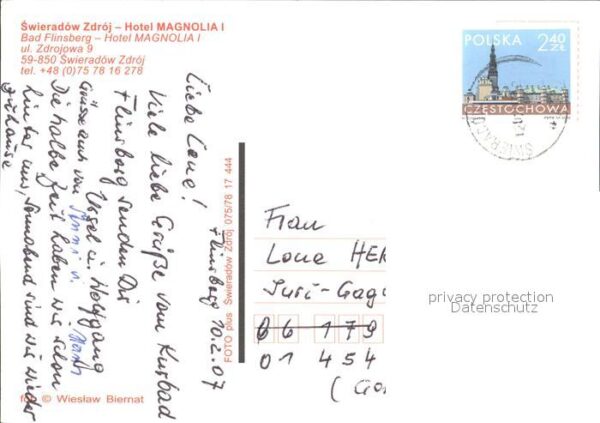 Świeradów Zdrój – Hotel MAGNOLIA I
Bad Flinsberg – Hotel MAGNOLIA I
ul. Zdrojowa 9
59-850 Świeradów Zdrój
tel. +48 (0)75 78 16 278
POLSKA 2,40 ZŁ
CZĘSTOCHOWA
Flinsberg 10.2.07
Liebe Lone!
Viele liebe Grüße vom Kurbad
Flinsberg senden Dir
Ursel u. Wolfgang
Grüsse auch von
Die halbe Zeit haben wir schon
hinter uns, Sonnabend sind wir wieder
zuhause
FOTO plus Świeradów Zdrój 075/78 17 444
Frau
Lone HER
Juri-Gag
06179
01454
fot. © Wiesław Biernat
privacy protection
Datenschutz